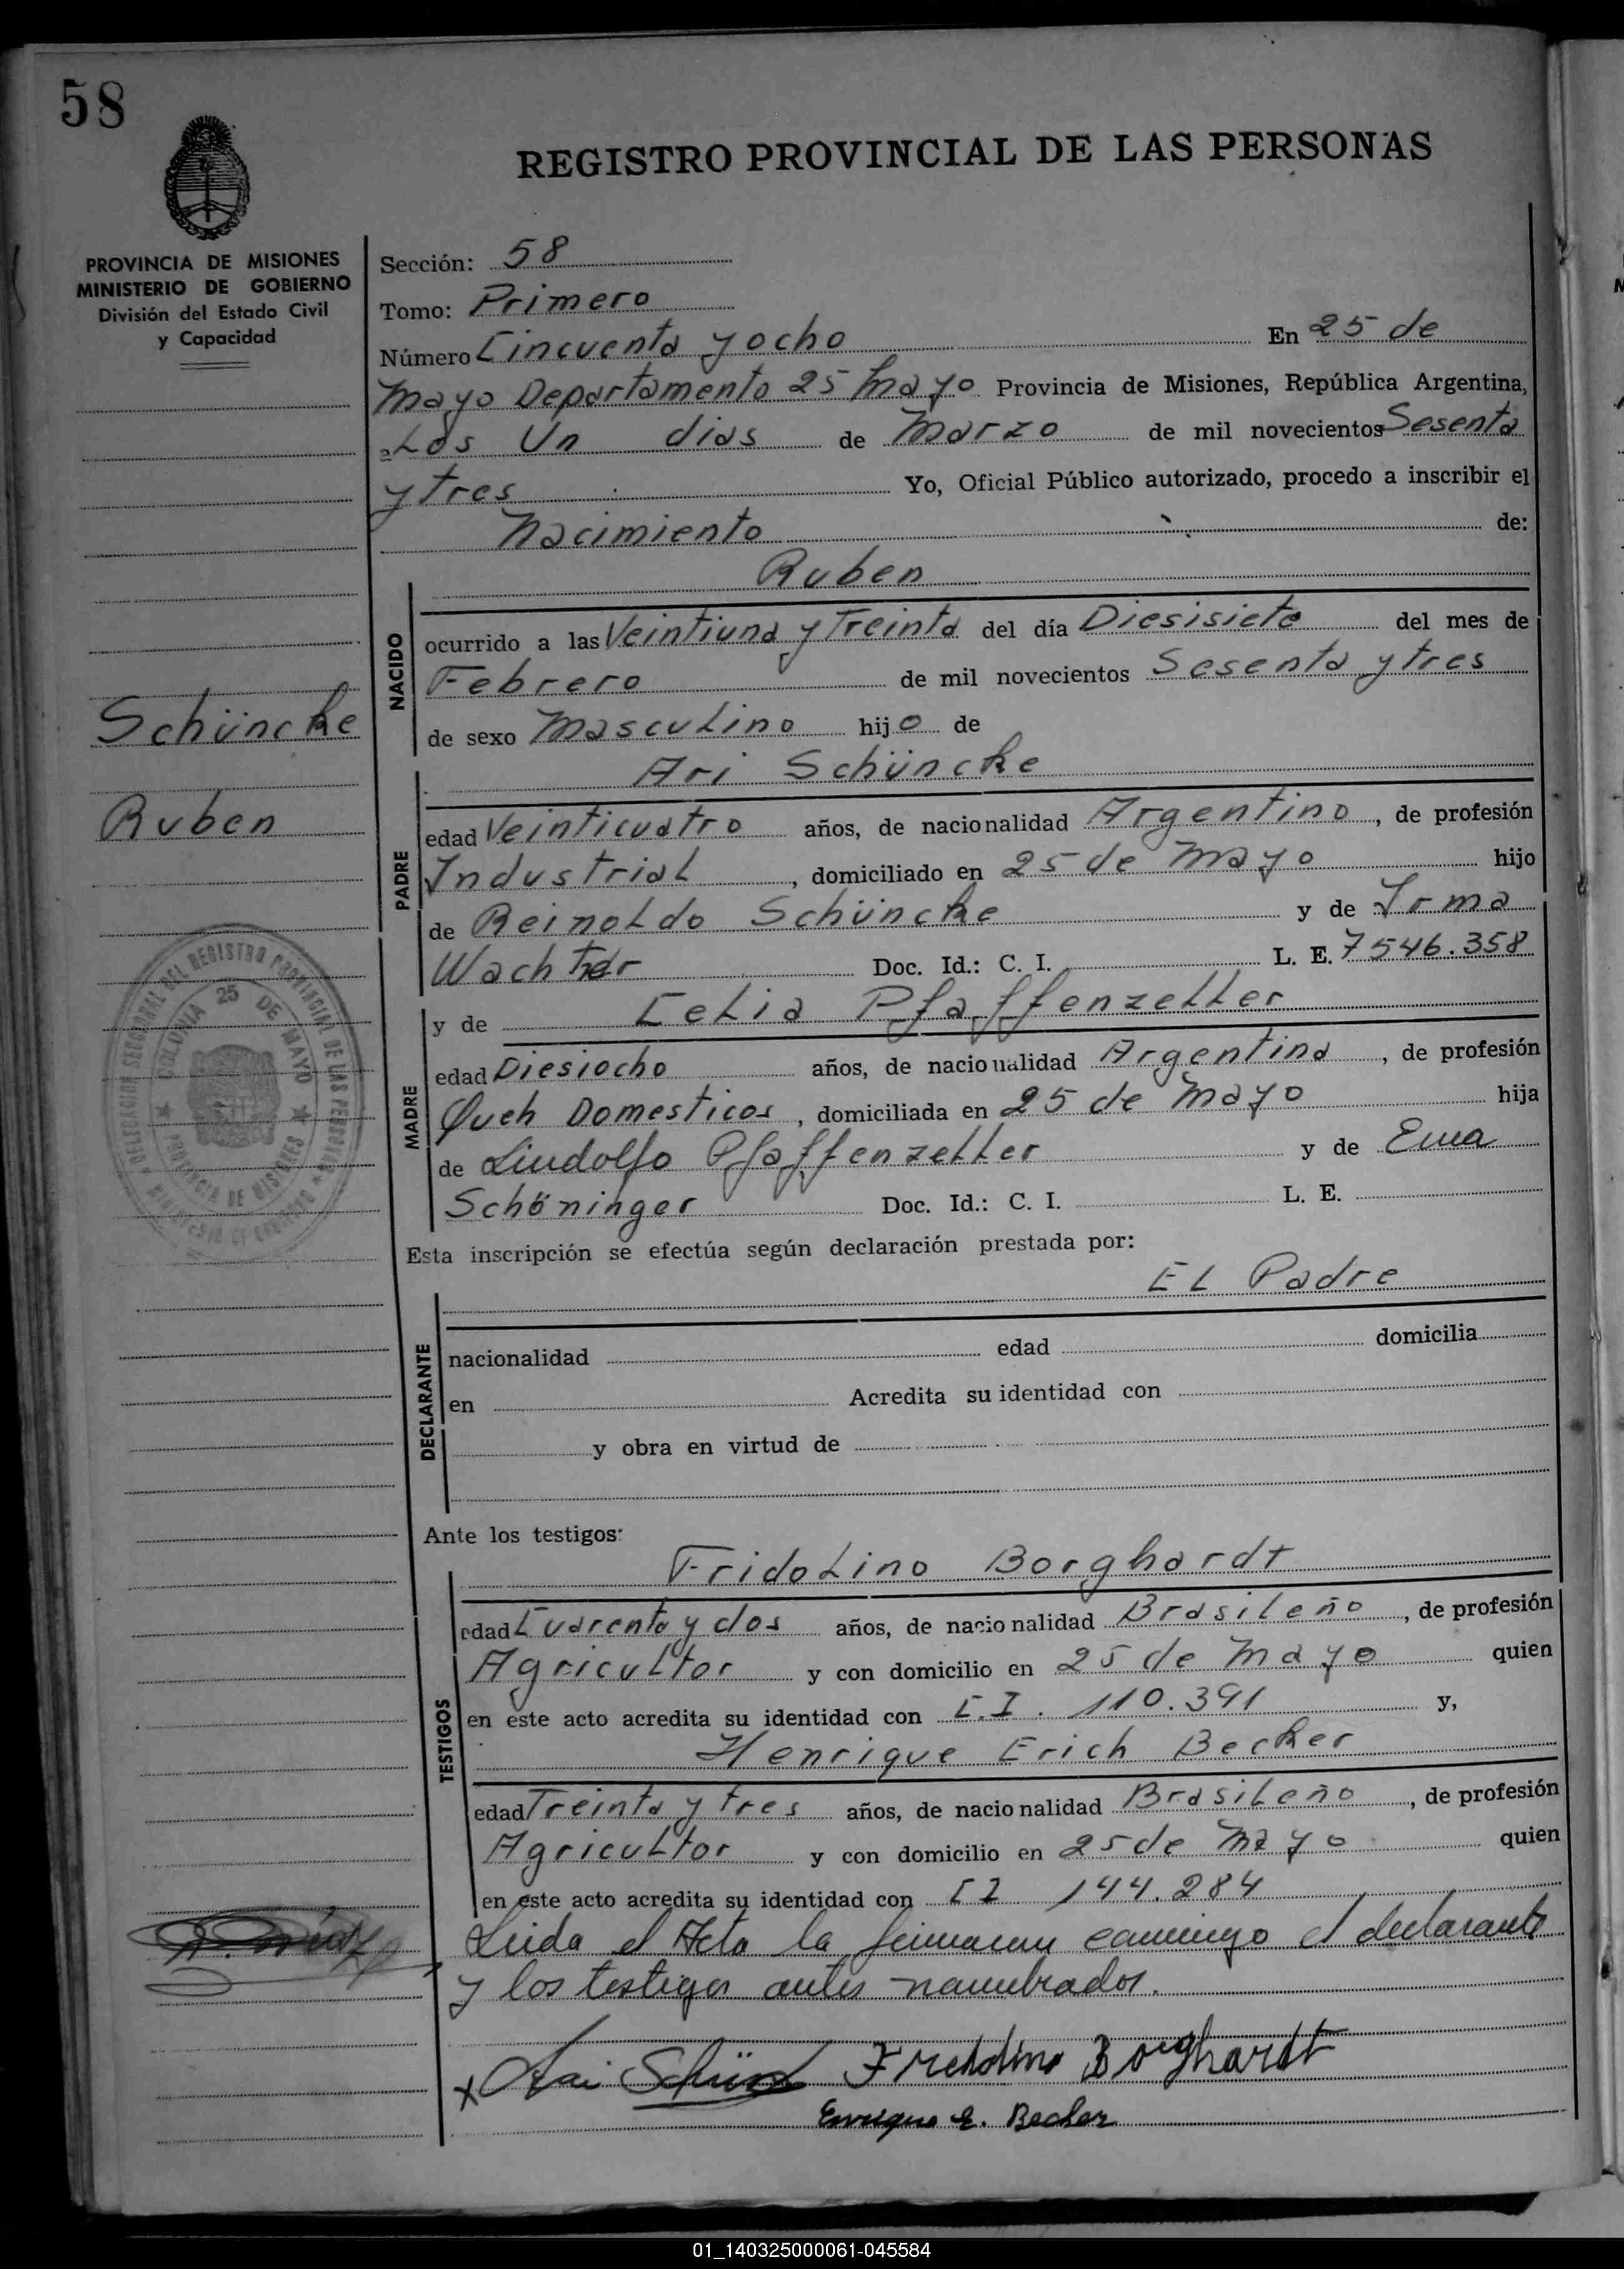 58
REGISTRO PROVINCIAL DE LAS PERSONAS
PROVINCIA DE MISIONES
MINISTERIO DE GOBIERNO
División del Estado Civil
y Capacidad
Sección: 58
Tomo: Primero
Número Cincuenta y ocho En 25 de
Mayo Departamento 25 Mayo Provincia de Misiones, República Argentina,
a Los Un dias de Marzo de mil novecientos Sesenta
y tres Yo, Oficial Público autorizado, procedo a inscribir el
Nacimiento de:
Ruben
NACIDO
ocurrido a las Veintiuna y Treinta del día Diesisiete del mes de
Febrero de mil novecientos Sesenta y tres
de sexo Masculino hijo de
Schüncke
Ruben
Ari Schüncke
PADRE
edad Veinticuatro años, de nacionalidad Argentino, de profesión
Industrial, domiciliado en 25 de Mayo hijo
de Reinoldo Schüncke y de Irma
Wachter Doc. Id.: C. I. L. E. 7546.358
y de Celia Pfaffenzeller
MADRE
edad Diesiocho años, de nacionalidad Argentina, de profesión
Queh Domesticos, domiciliada en 25 de Mayo hija
de Lindolfo Pfaffenzeller y de Ema
Schöninger Doc. Id.: C. I. L. E.
DELEGACION SECCIONAL DEL REGISTRO PROVINCIAL DE LAS PERSONAS
COLONIA 25 DE MAYO
PROVINCIA DE MISIONES
MINISTERIO DE GOBIERNO
Esta inscripción se efectúa según declaración prestada por:
El Padre
DECLARANTE
nacionalidad edad domicilia
en Acredita su identidad con
y obra en virtud de
Ante los testigos:
Fridolino Borghardt
TESTIGOS
edad Cuarenta y dos años, de nacionalidad Brasileño, de profesión
Agricultor y con domicilio en 25 de Mayo quien
en este acto acredita su identidad con C.I. 110.391 y,
Henrique Erich Becker
edad Treinta y tres años, de nacionalidad Brasileño, de profesión
Agricultor y con domicilio en 25 de Mayo quien
en este acto acredita su identidad con CI 144.284
Leida el Acta la firmaron conmigo el declarante
y los testigos antes nombrados.
x Ari Schün Fridolino Borghardt
Enrique E. Becker
01_140325000061-045584